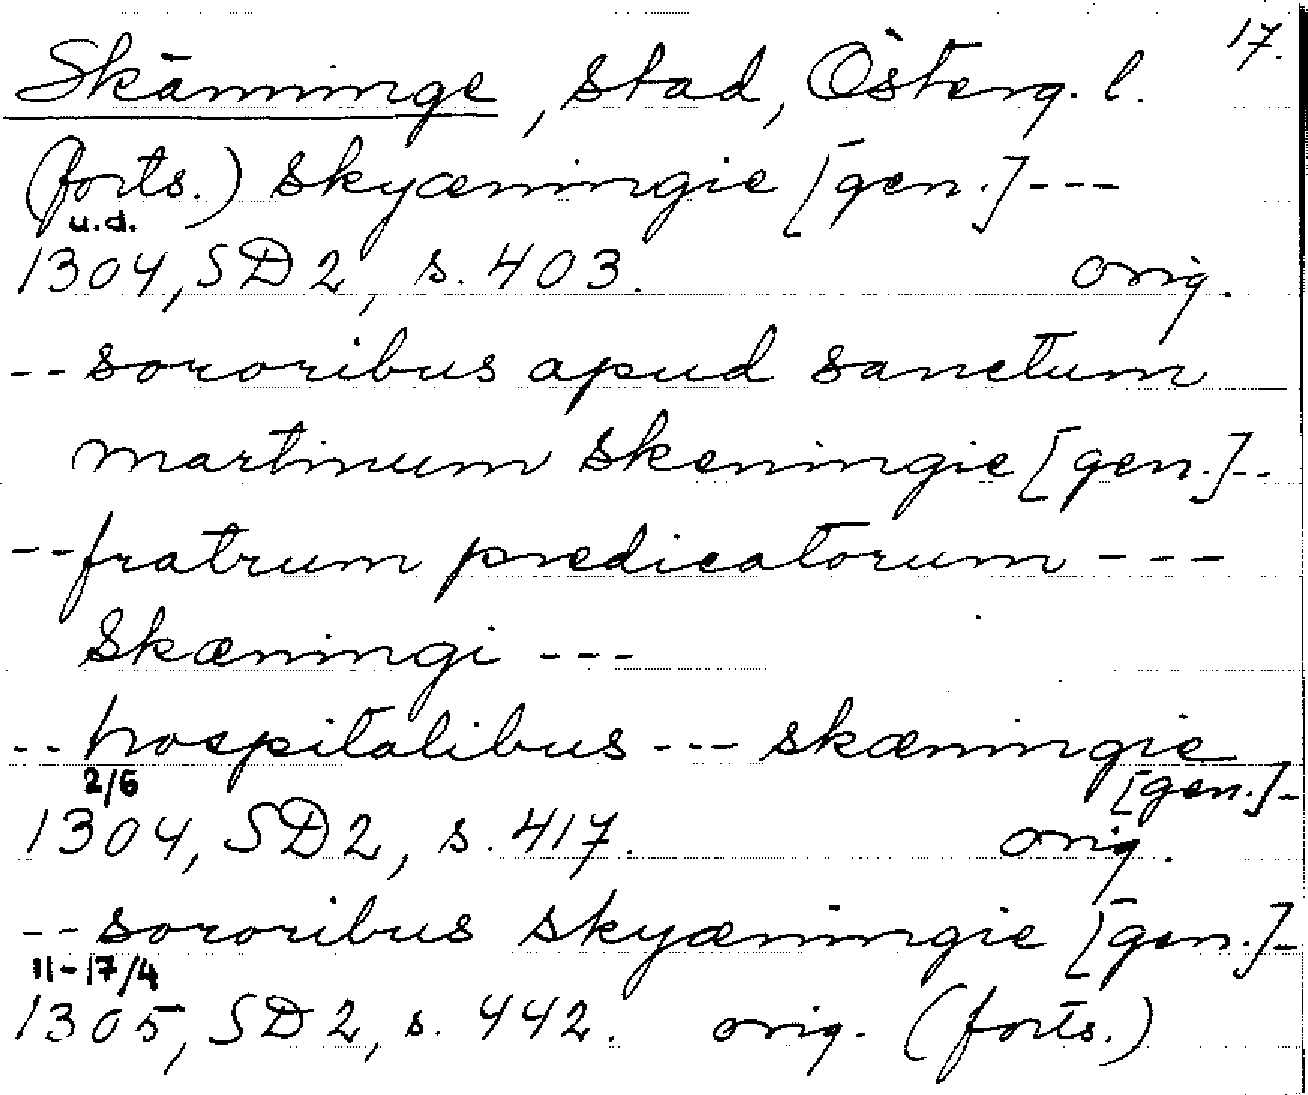 17.
Skänninge, stad, Österg. l.
(forts.) skyæningie [gen.] ---
u.d.
1304, SD 2, s. 403. orig.
-- sororibus apud sanctum
martinum skeningie [gen.] --
-- fratrum predicatorum ---
Skæningi ---
-- hospitalibus --- skæningie
[gen.] -
2/6
1304, SD 2, s. 417. orig.
-- sororibus skyæningie [gen.] -
11-17/4
1305, SD 2, s. 442. orig. (forts.)